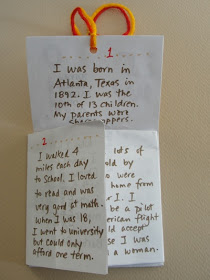 1
I was born in
Atlanta, Texas in
1892. I was the
10th of 13 children.
My parents were
sharecroppers.
2
I walked 4
miles each day
to school. I loved
to read and was
very good at math.
When I was 18,
I went to university
but could only
afford one term.
lots of
told by
were
home from
I. I
be a pilot
American flight
would accept
I was
a woman.